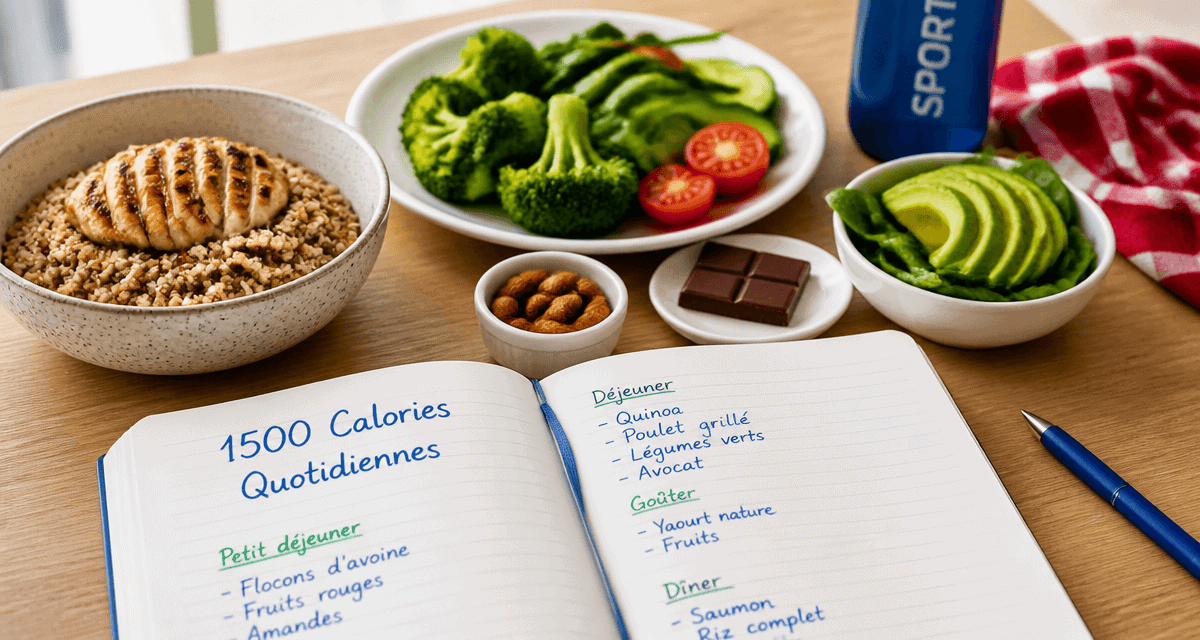 SPORT
1500 Calories
Quotidiennes
Petit déjeuner
- Flocons d'avoine
- Fruits rouges
- Amandes
Déjeuner
- Quinoa
- Poulet grillé
- Légumes verts
- Avocat
Goûter
- Yaourt nature
- Fruits
Dîner
- Saumon
- Riz complet